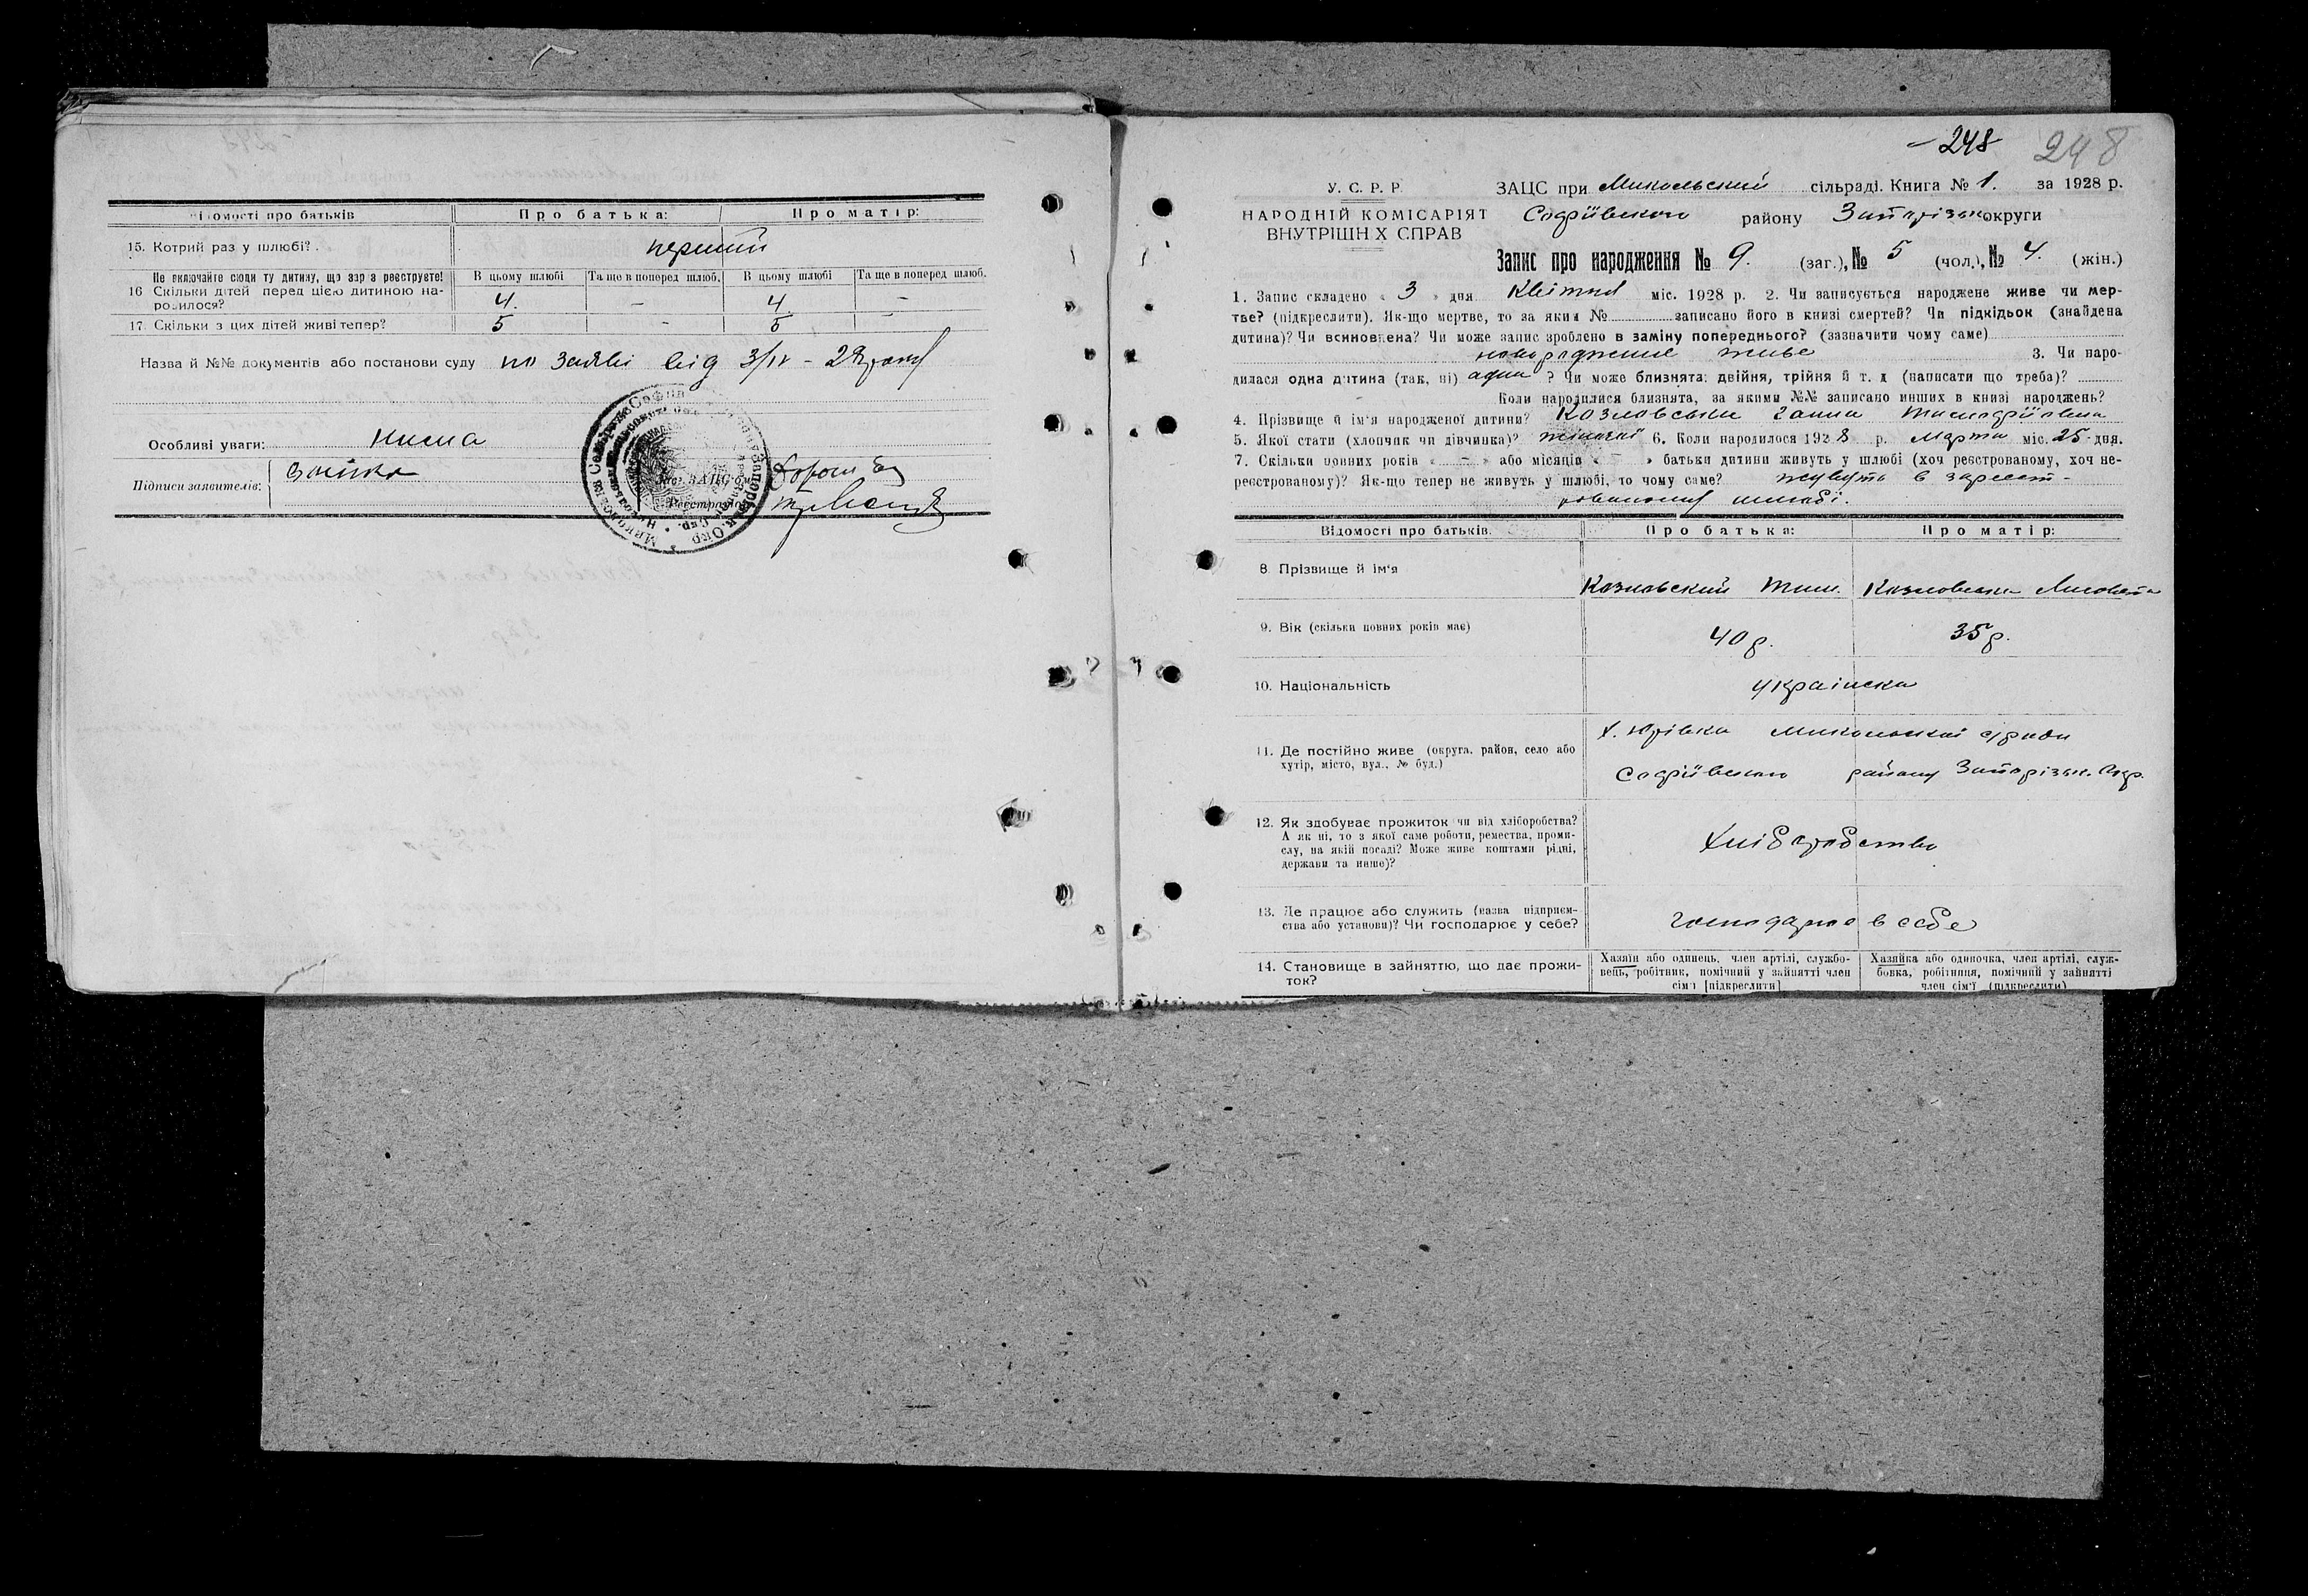 Відомості про батьків
Про батька:
Про матір:
15. Котрий раз у шлюбі?
перший
Не включайте сюди ту дитину, що зараз реєструєте!
В цьому шлюбі
Та ще в поперед шлюб.
В цьому шлюбі
Та ще в поперед шлюб.
16 Скільки дітей перед цією дитиною на-
родилося?
4. - 4. -
17. Скільки з цих дітей живі тепер?
5 - 5
Назва й №№ документів або постанови суду по заяві від 3/IV - 28 року
Особливі уваги: нима
Підписи заявителів:
Зав. ЗАЦС'ом
Реєстратор
-248-
248
У. С. Р. Р.
НАРОДНІЙ КОМІСАРІЯТ
ВНУТРІШНІХ СПРАВ
ЗАЦС при Микольский сільраді. Книга № 1. за 1928 р.
Софіївського району Запорізьк округи
Запис про народження № 9. (заг.), № 5 (чол.), № 4. (жін.)
1. Запис складено « 3 » дня Квітня міс. 1928 р. 2. Чи записується народжене живе чи мер-
тве? (підкреслити). Як-що мертве, то за яким № записано його в книзі смертей? Чи підкідьок (знайдена
дитина)? Чи всиновлена? Чи може запис зроблено в заміну попереднього? (зазначити чому саме)
новорождене живе 3. Чи наро-
дилася одна дитина (так, ні) одна ? Чи може близнята: двійня, трійня й т. д (написати що треба)?
Коли народилися близнята, за якими №№ записано инших в книзі народжень?
4. Прізвище й ім'я народженої дитини? Козловська Ганна
5. Якої стати (хлопчик чи дівчинка)? жіночої 6. Коли народилося 1928 р. Марта міс. 25 дня.
7. Скільки повних років « - » або місяців « - » батьки дитини живуть у шлюбі (хоч реєстрованому, хоч не-
реєстрованому)? Як-що тепер не живуть у шлюбі, то чому саме? живуть в зареєст-
рованому шлюбі.
Відомості про батьків.
Про батька:
Про матір:
8. Прізвище й ім'я
Козловський Тим.
Козловська
9. Вік (скільки повних років має)
40 р.
35 р.
10. Національність
українська
11. Де постійно живе (округа, район, село або
хутір, місто, вул., № буд.)
х. Юрівка Микольської с/ради
Софіївського району Запорізьк. Окр.
12. Як здобуває прожиток чи від хліборобства?
А як ні, то з якої саме роботи, ремества, проми-
слу, на якій посаді? Може живе коштами рідні,
держави та инше)?
Хліборобство
13. Де працює або служить (назва підприєм-
ства або установи)? Чи господарює у себе?
господарює в себе
14. Становище в зайняттю, що дає прожи-
ток?
Хазяїн або одинець, член артілі, службо-
вець, робітник, помічний у зайнятті член
сім'ї [підкреслити]
Хазяйка або одиночка, член артілі, служ-
бовка, робітниця, помічний у зайнятті
член сім'ї (підкреслити)